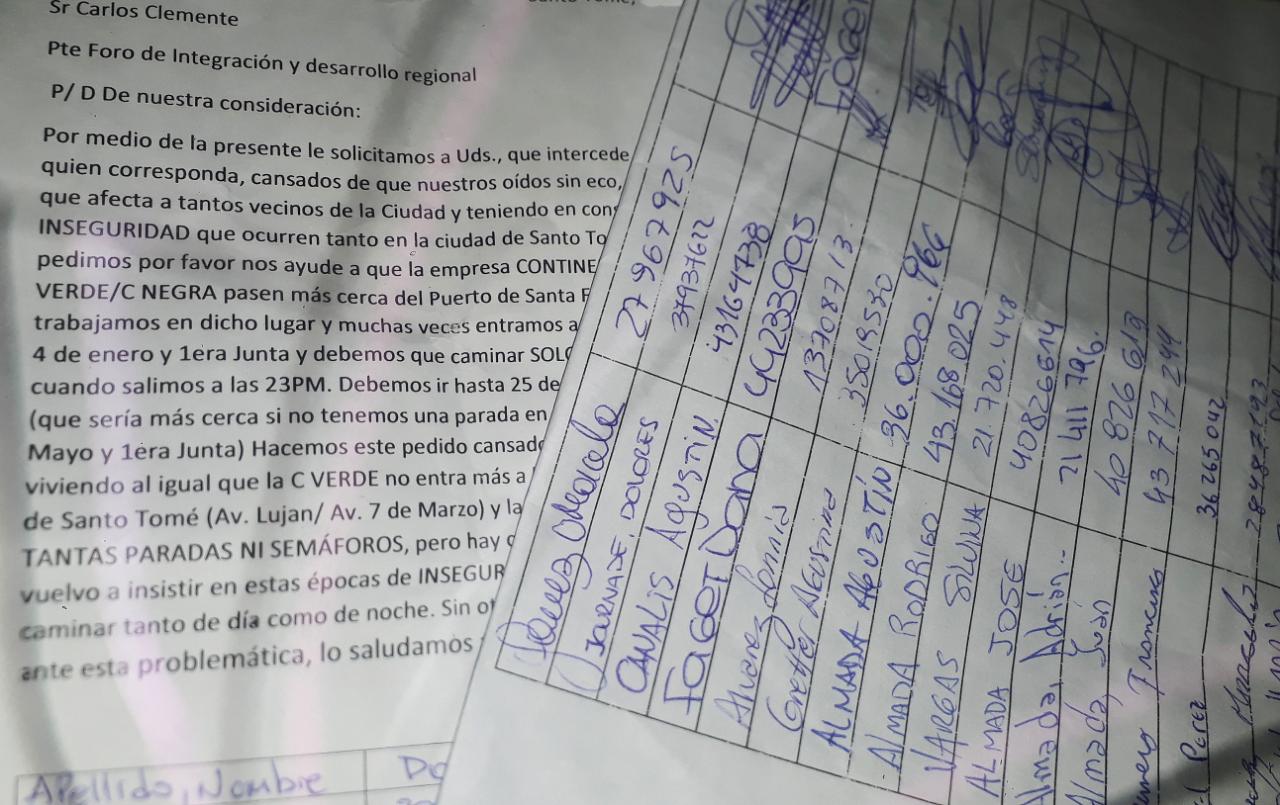 Sr Carlos Clemente
Pte Foro de Integración y desarrollo regional
P/ D De nuestra consideración:
Por medio de la presente le solicitamos a Uds., que intercede
quien corresponda, cansados de que nuestros oídos sin eco,
que afecta a tantos vecinos de la Ciudad y teniendo en con
INSEGURIDAD que ocurren tanto en la ciudad de Santo To
pedimos por favor nos ayude a que la empresa CONTINE
VERDE/C NEGRA pasen más cerca del Puerto de Santa F
trabajamos en dicho lugar y muchas veces entramos a
4 de enero y 1era Junta y debemos que caminar SOLO
cuando salimos a las 23PM. Debemos ir hasta 25 de
(que sería más cerca si no tenemos una parada en
Mayo y 1era Junta) Hacemos este pedido cansado
viviendo al igual que la C VERDE no entra más a
de Santo Tomé (Av. Lujan/ Av. 7 de Marzo) y la
TANTAS PARADAS NI SEMÁFOROS, pero hay
vuelvo a insistir en estas épocas de INSEGUR
caminar tanto de día como de noche. Sin ot
ante esta problemática, lo saludamos
Apellido, Nombre
27967925
DOLORES 37937622
CANALIS AGUSTIN 43164738
FAGER Dana 44233995
Alvarez 13708713
AGUSTINA 35019530
ALMADA AGUSTÍN 36.000.966
ALMADA RODRIGO 43.168.025
VARGAS SILVINA 21.720.448
ALMADA JOSÉ 40826614
Almada, Adrián.. 21 411 796.
Almada, Iván 40 826 619
43 717 244
Perez 36265042